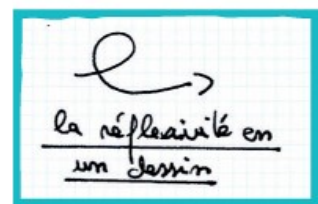 la réflexivité en
un dessin